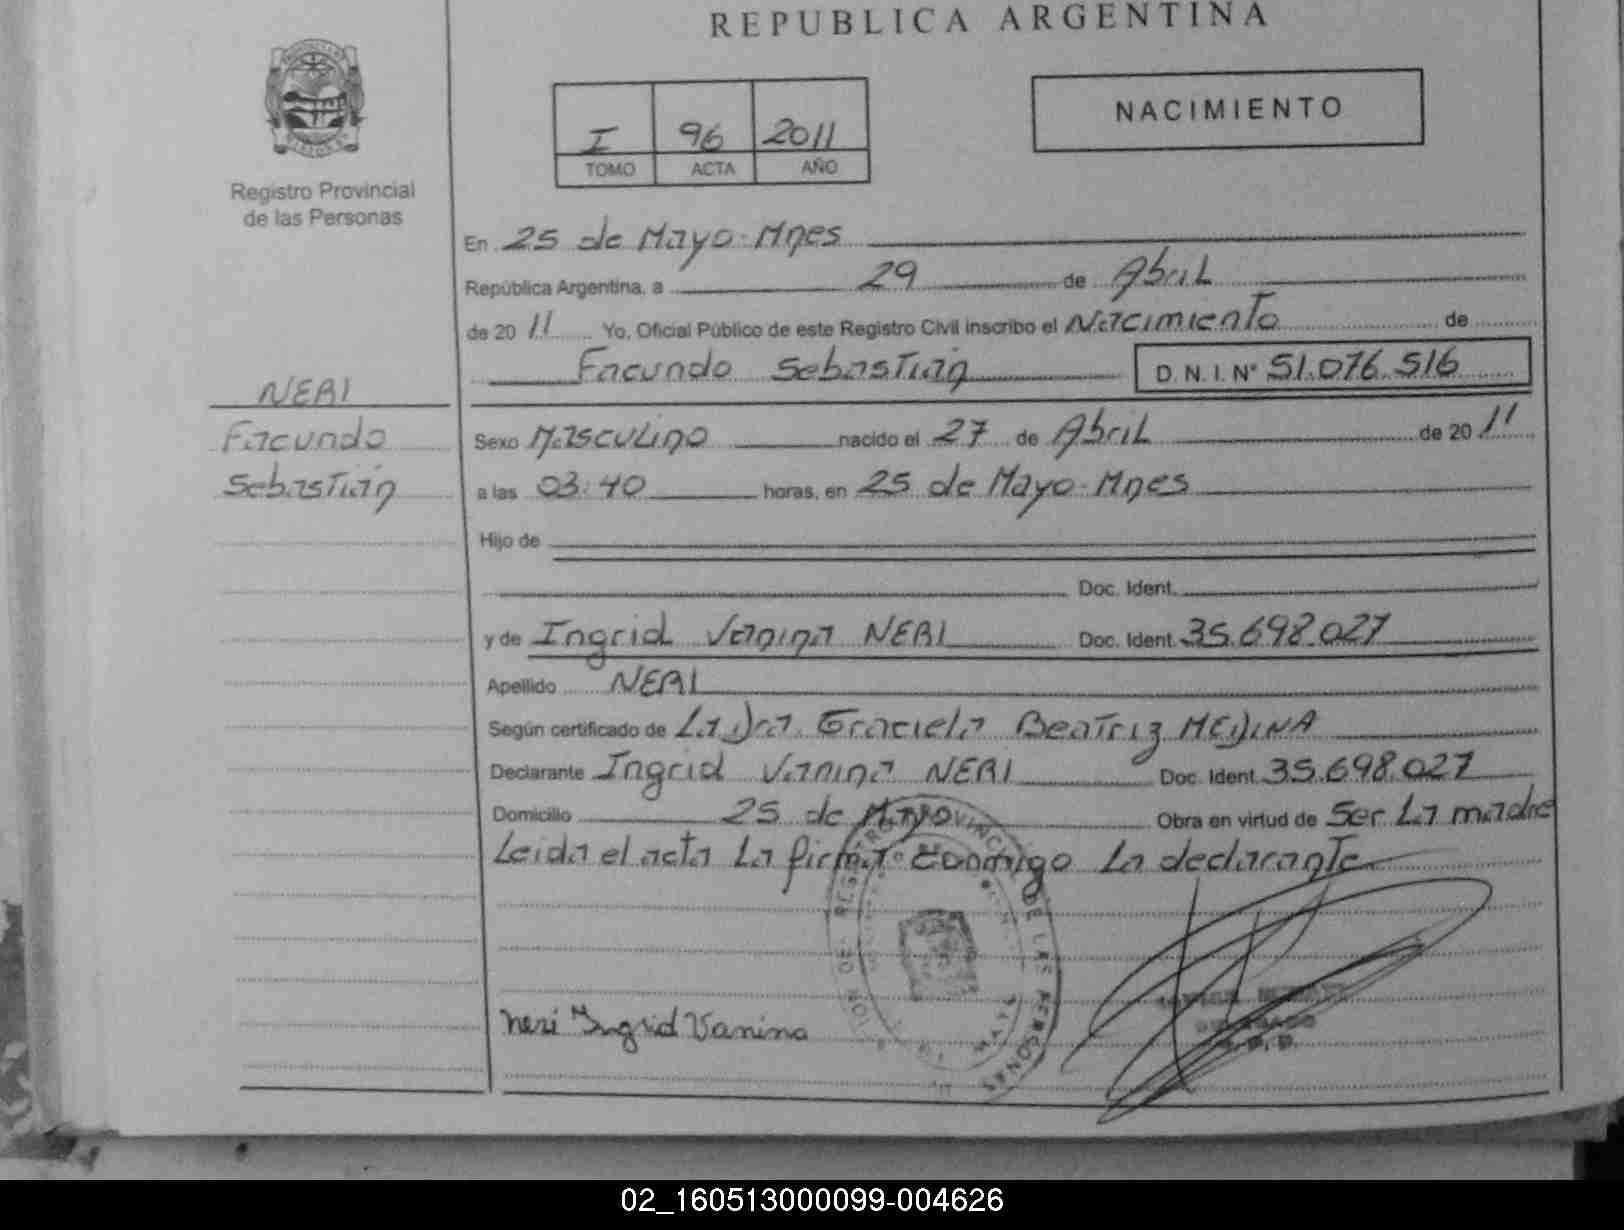 REPUBLICA ARGENTINA
NACIMIENTO
I 96 2011
TOMO ACTA AÑO
Registro Provincial
de las Personas
En 25 de Mayo-Mnes
República Argentina, a 29 de Abril
de 20 11 Yo, Oficial Público de este Registro Civil inscribo el Nacimiento de
Facundo Sebastián D. N. I. N° 51.076.516
NERI
Facundo
Sebastián
Sexo Masculino nacido el 27 de Abril de 20 11
a las 03:40 horas, en 25 de Mayo-Mnes
Hijo de
Doc. Ident.
y de Ingrid Vanina NERI Doc. Ident. 35.698.027
Apellido NERI
Según certificado de La Dra. Graciela Beatriz MEDINA
Declarante Ingrid Vanina NERI Doc. Ident. 35.698.027
Domicilio 25 de Mayo Obra en virtud de Ser La madre
Leida el acta La firma Conmigo La declarante
REGISTRO PROVINCIAL DE LAS PERSONAS
Neri Ingrid Vanina
02_160513000099-004626